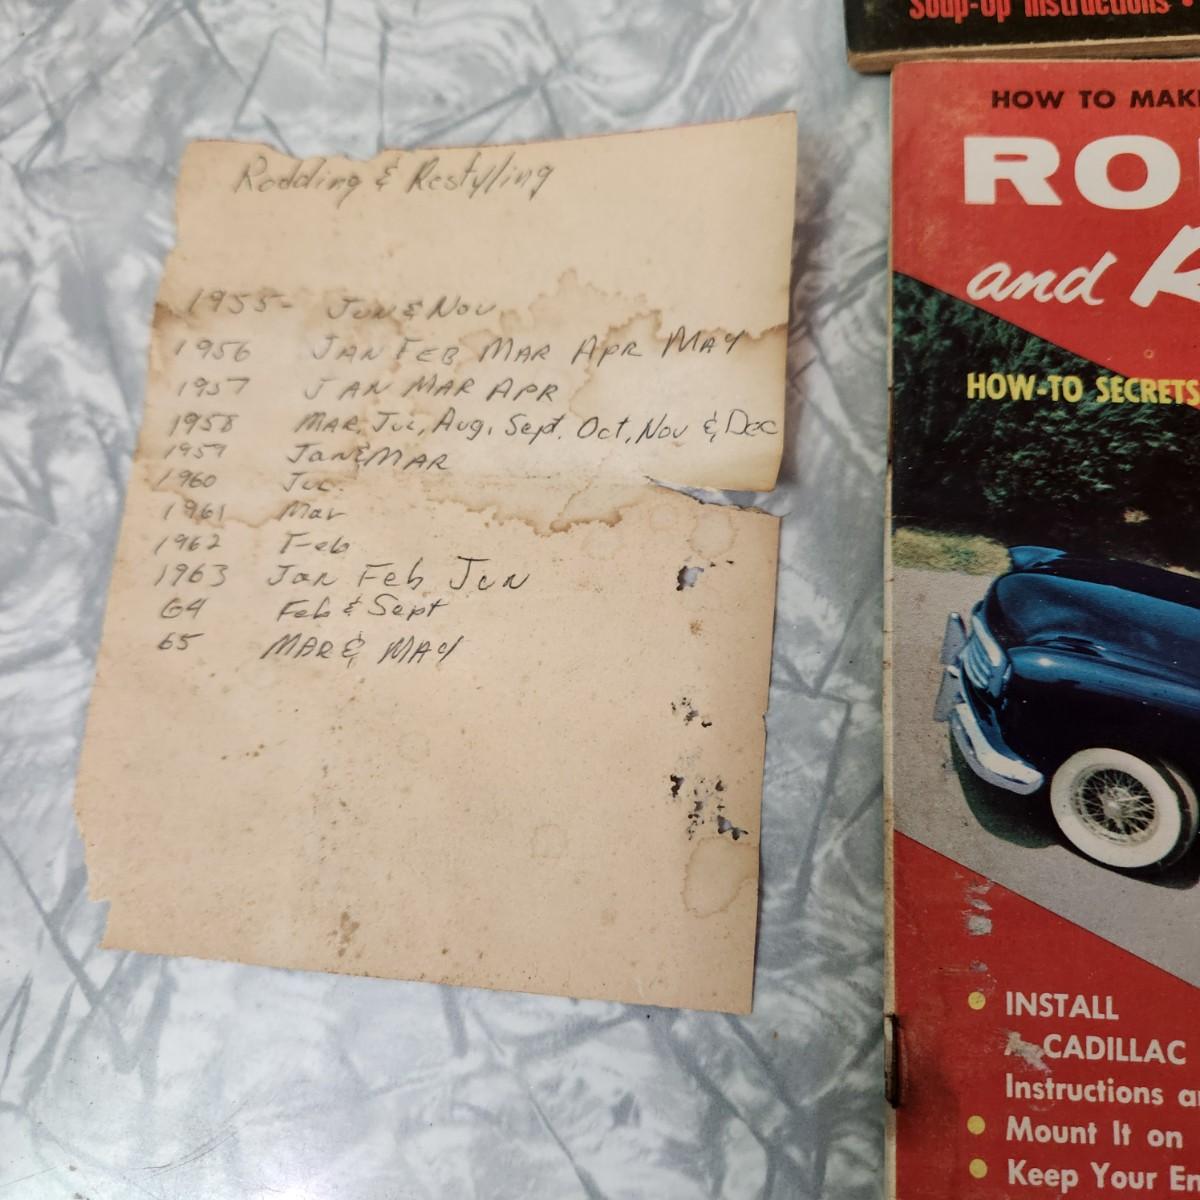 Rodding & Restyling
1955- Jun & Nov
1956 JAN FEB MAR APR MAY
1957 JAN MAR APR
1958 MAR, JUL, Aug, Sept. Oct, Nov & Dec
1959 Jan & MAR
1960 JUL.
1961 Mar
1962 Feb
1963 Jan Feb Jun
64 Feb & Sept
65 MAR & MAY
Soup-Up Instructions •
HOW TO MAK
RO
and R
HOW-TO SECRETS
• INSTALL
A CADILLAC
Instructions a
• Mount It on
• Keep Your En